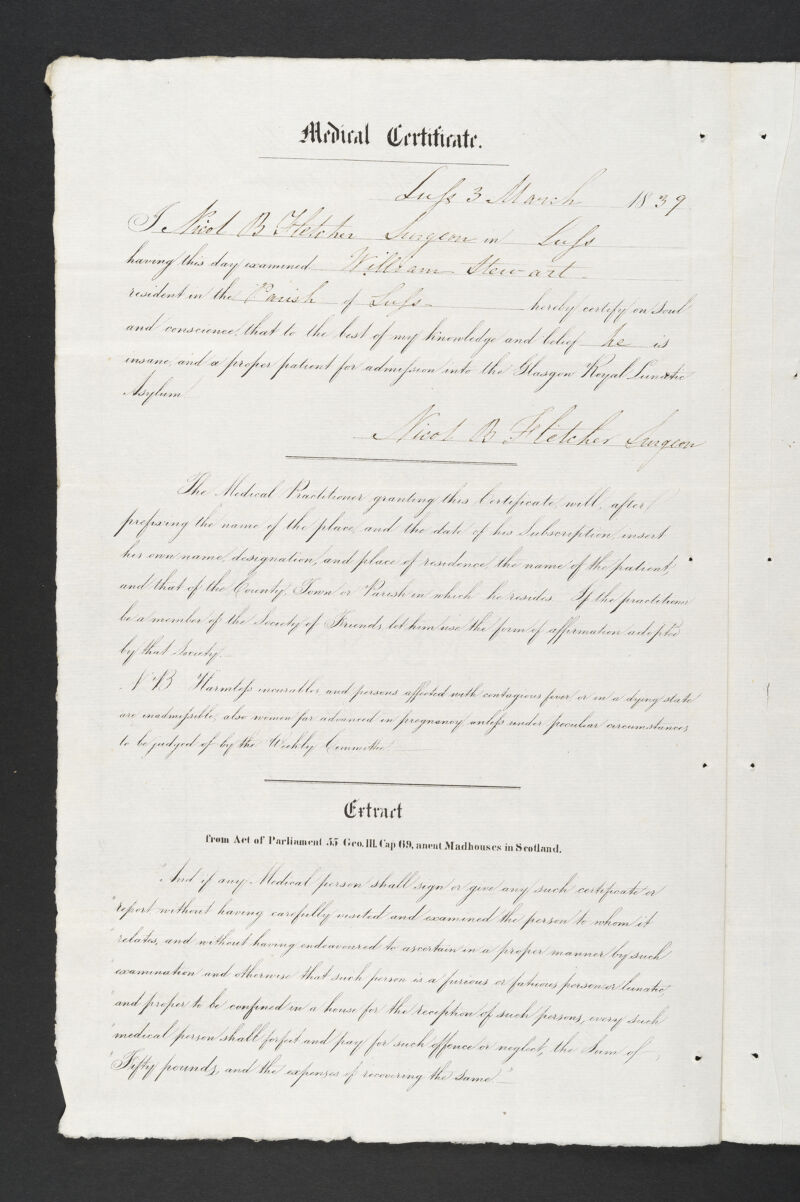 Medical Certificate.
Luss 3 March 1839
I Nicol B Fletcher Surgeon in Luss
having this day examined William Stewart
resident in the Parish of Luss hereby certify on Soul
and conscience, that to the best of my knowledge and belief he is
insane, and a proper patient for admission into the Glasgow Royal Lunatic
Asylum
Nicol B Fletcher Surgeon
The Medical Practitioner granting this Certificate, will, after
prefixing the name of the place, and the date of his Subscription, insert
his own name, designation, and place of residence, the name of the patient,
and that of the County, Town or Parish in which he resides. If the practitioner
be a member of the Society of Friends, let him use the form of affirmation adopted
by that Society.
N.B. Harmless incurables and persons affected with contagious fever or in a dying state
are inadmissible, also women far advanced in pregnancy unless under peculiar circumstances
to be judged of by the Weekly Committee.
Extract
from Act of Parliament 55 Geo. III. Cap 69, anent Madhouses in Scotland.
"And if any Medical person shall sign or give any such certificate or
"report, without having carefully visited and examined the person to whom it
"relates, and without having endeavoured to ascertain in a proper manner by such
"examination and otherwise that such person is a furious or fatuous person or lunatic
"and proper to be confined in a house for the reception of such persons, every such
"medical person shall forfeit and pay for such offence or neglect, the Sum of
"Fifty pounds, and the expenses of recovering the same."